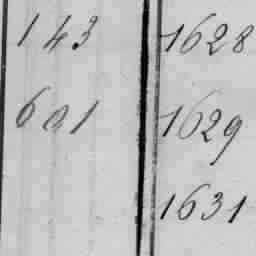 143 1628
601 1629
1631